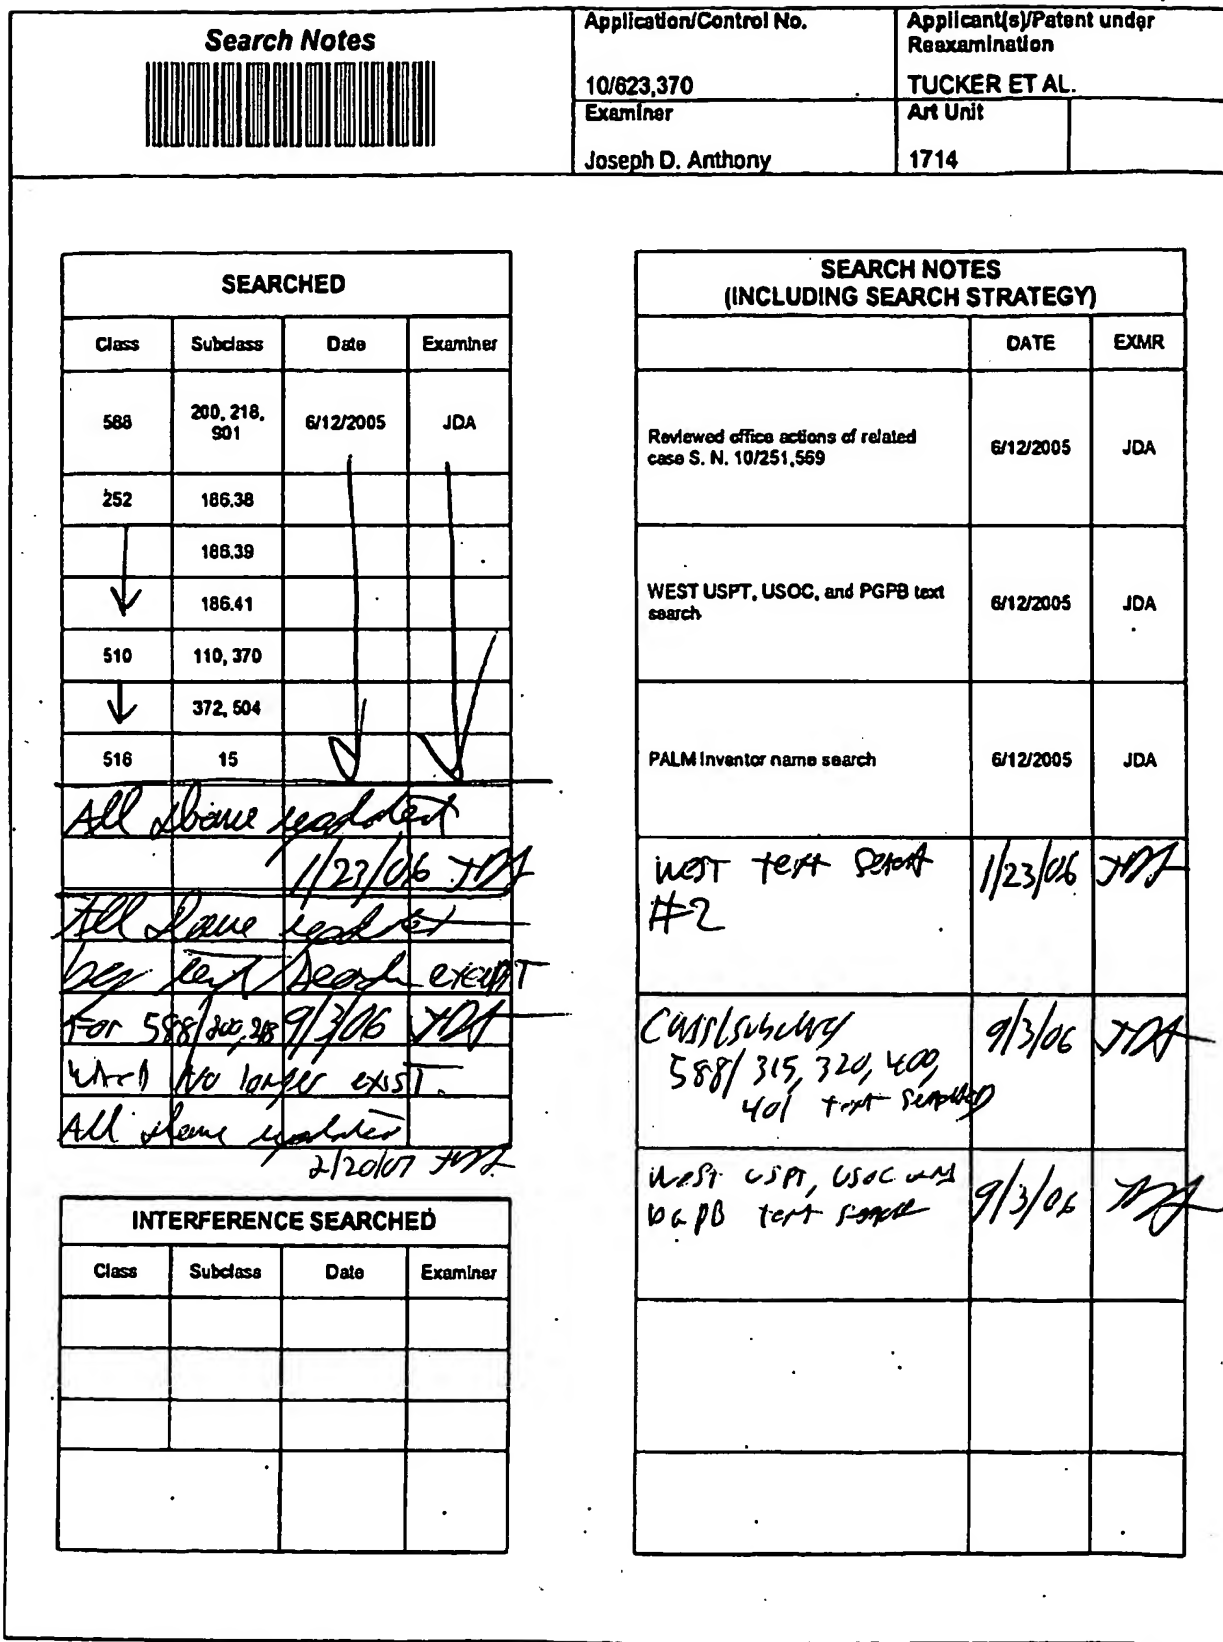 Search Notes
Application/Control No.
10/623,370
Applicant(s)/Patent under
Reexamination
TUCKER ET AL.
Examiner
Joseph D. Anthony
Art Unit
1714
SEARCHED
Class Subclass Date Examiner
588 200, 218, 6/12/2005 JDA
901
252 186.38
186.39
186.41
510 110, 370
372, 504
516 15
All above updated
1/23/06 JDA
All above updated
by text search except
For 588/200,218 9/3/06 JDA
which No longer exist.
All above updated
2/20/07 JDA
INTERFERENCE SEARCHED
Class Subclass Date Examiner
SEARCH NOTES
(INCLUDING SEARCH STRATEGY)
DATE EXMR
Reviewed office actions of related
case S. N. 10/251,569 6/12/2005 JDA
WEST USPT, USOC, and PGPB text
search 6/12/2005 JDA
PALM Inventor name search 6/12/2005 JDA
WEST text search 1/23/06 JDA
#2
Class/subclass 9/3/06 JDA
588/ 315, 320, 400,
401 text searched
West USPT, USOC and
PGPB text search 9/3/06 JDA